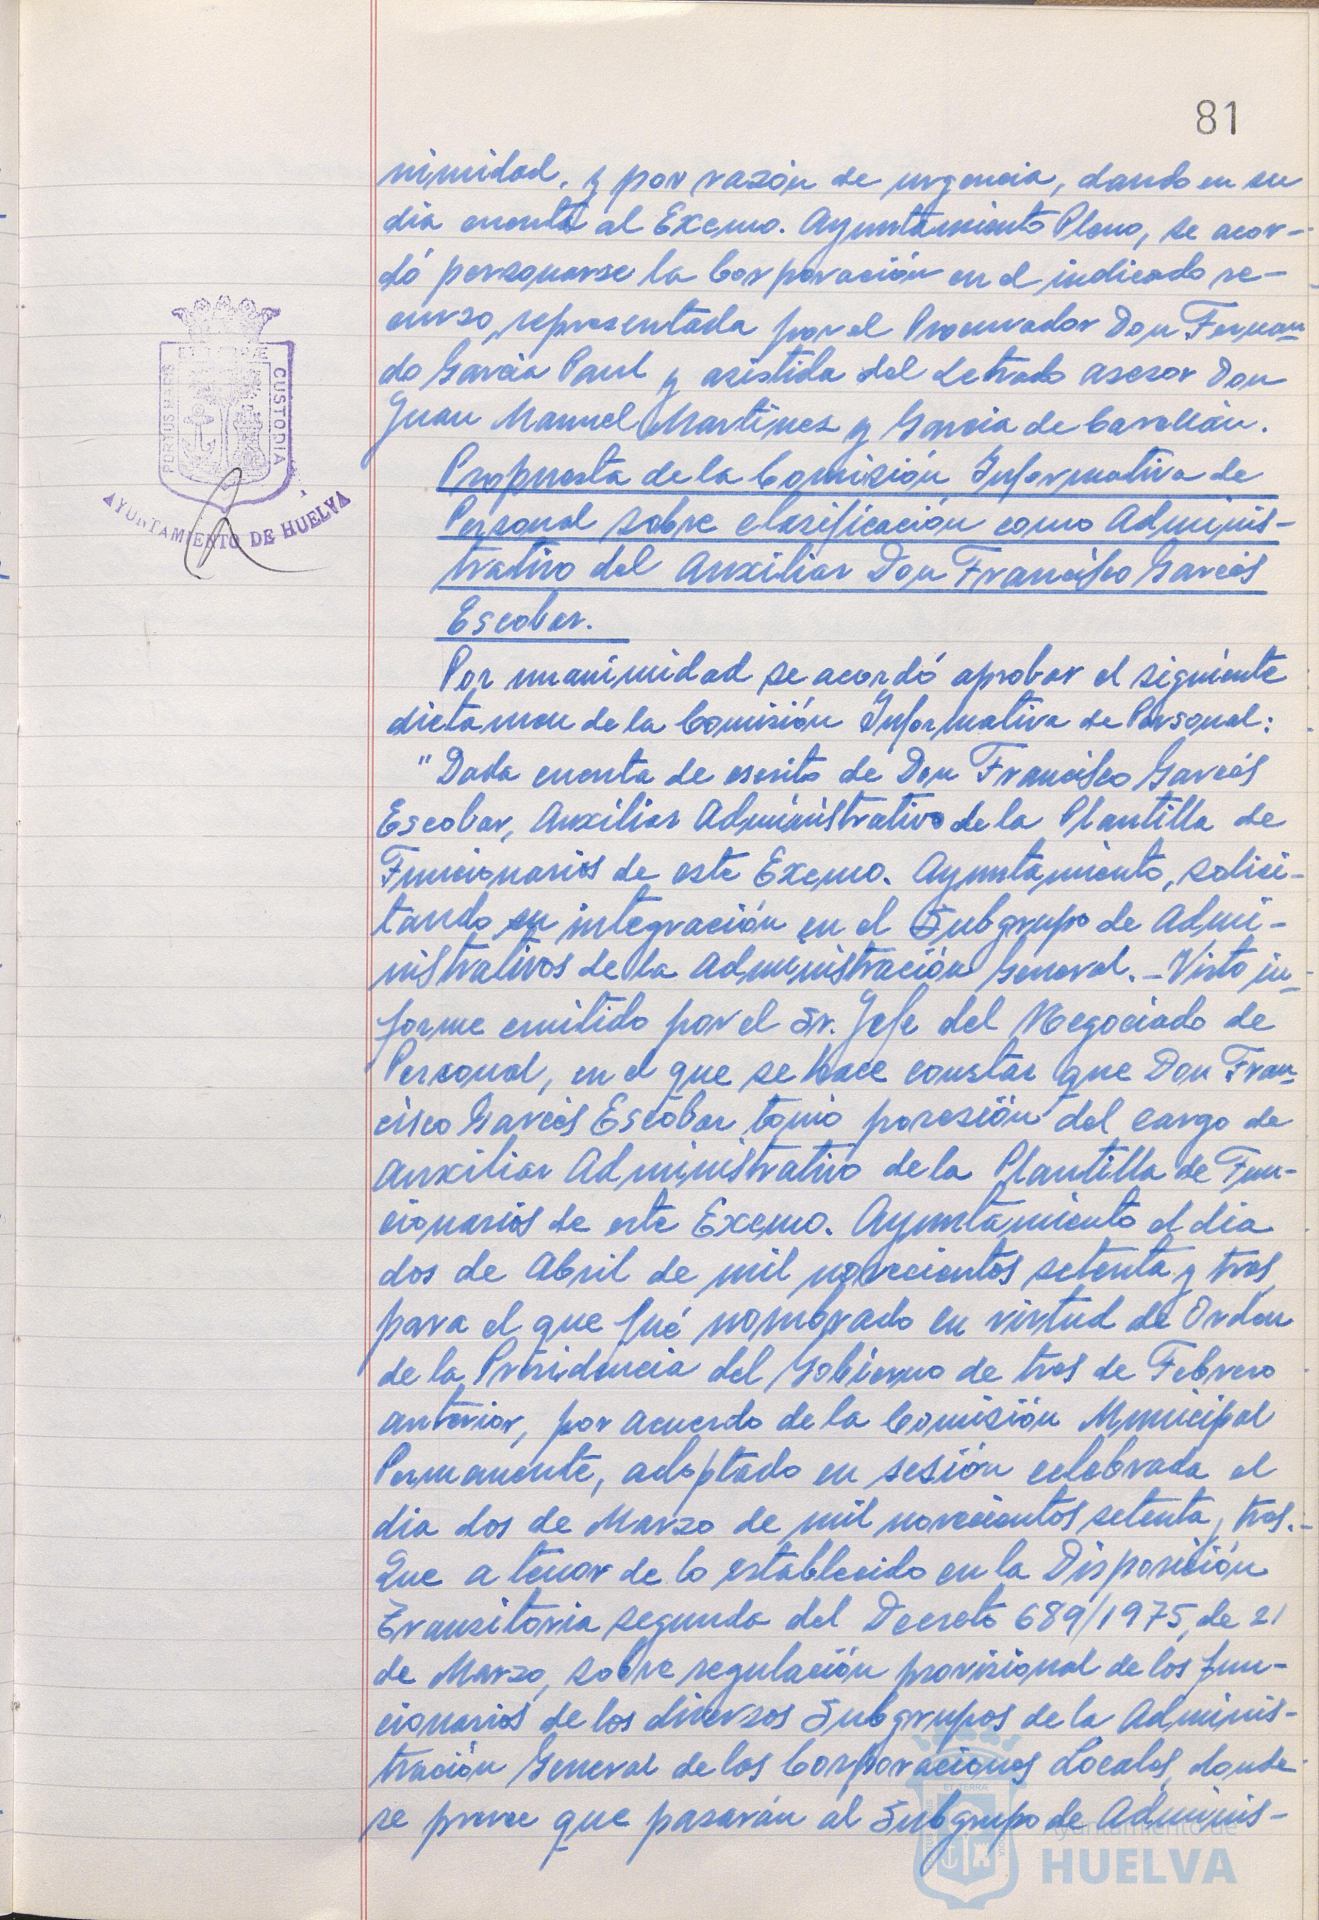 81
nimidad, y por razón de urgencia, dando en su
dia cuenta al Excmo. Ayuntamiento Pleno, se acor-
dó personarse la Corporación en el indicado re-
curso, representada por el Procurador Don Fernan-
do Garcia Paul y asistida del Letrado asesor Don
Juan Manuel Martinez y Garcia de
Propuesta de la Comisión Informativa de
Personal sobre clasificación como Adminis-
trativo del Auxiliar Don Francisco Garcés
Escobar.
Por unanimidad se acordó aprobar el siguiente
dictamen de la Comisión Informativa de Personal:
"Dada cuenta de escrito de Don Francisco Garcés
Escobar, Auxiliar Administrativo de la Plantilla de
Funcionarios de este Excmo. Ayuntamiento, solici-
tando su integración en el Subgrupo de Admi-
nistrativos de la Administración General.- Visto in-
forme emitido por el Sr. Jefe del Negociado de
Personal, en el que se hace constar que Don Fran-
cisco Garcés Escobar tomó posesión del cargo de
Auxiliar Administrativo de la Plantilla de Fun-
cionarios de este Excmo. Ayuntamiento el dia
dos de Abril de mil novecientos setenta y tres,
para el que fué nombrado en virtud de Orden
de la Presidencia del Gobierno de tres de Febrero
anterior, por acuerdo de la Comisión Municipal
Permanente, adoptado en sesión celebrada el
dia dos de Marzo de mil novecientos setenta y tres.-
Que a tenor de lo establecido en la Disposición
Transitoria segunda del Decreto 689/1975, de 21
de Marzo, sobre regulación provisional de los fun-
cionarios de los diversos Subgrupos de la Adminis-
tración General de las Corporaciones Locales, donde
se prevee que pasarán al Subgrupo de Adminis-
PORTUS MARIS
ET TERRE
CUSTODIA
AYUNTAMIENTO DE HUELVA
ET TERRA
Ayuntamiento de
HUELVA